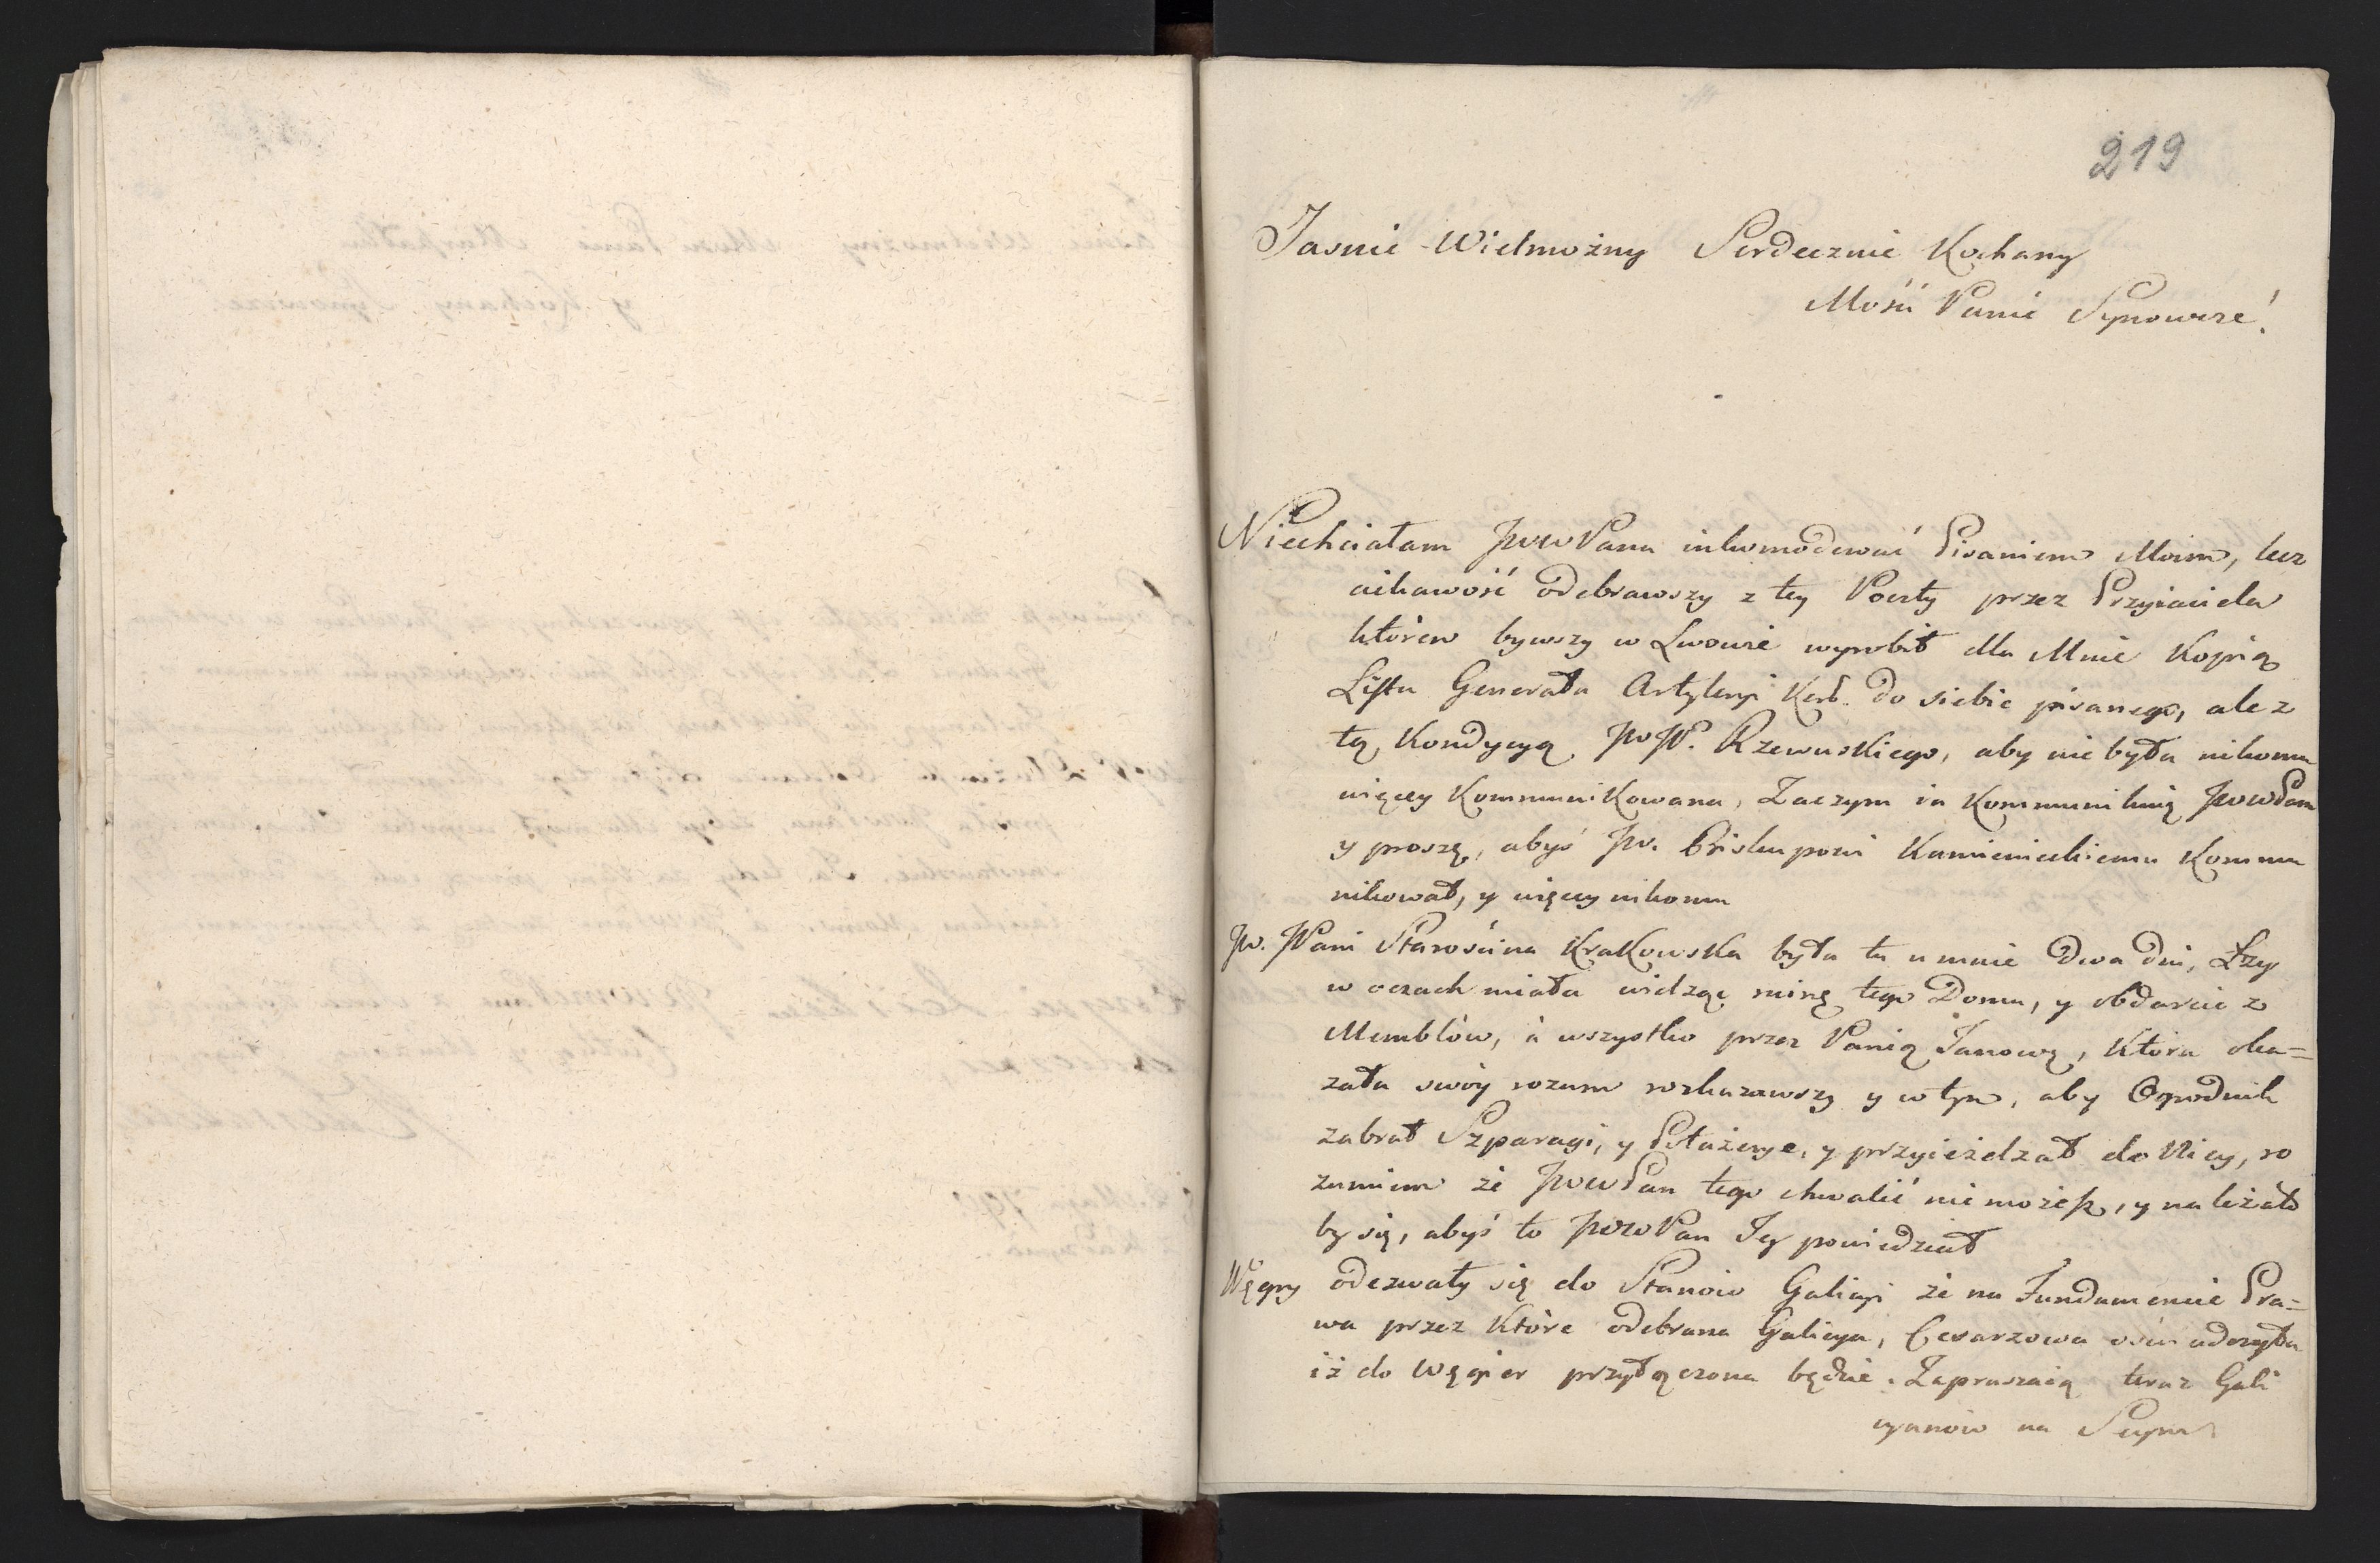 219
Jasnie Wielmożny Serdecznie Kochany
Mości Panie Synowcze!
Niechciałam JWWPana inkomodować Pisaniem Moim, lecz
ciekawość odebrawszy z tey Poczty przez Przyiaciela
któren bywszy w Lwowie wyrobił dla Mnie Kopią
Listu Generała Artyleryi Kor. do siebie pisanego, ale z
tą Kondycyą JWJP. Rzewuskiego, aby nie była nikomu
więcey Kommunikowana, Zaczym ia Kommunikuię JWWPanu
y proszę, abyś JW. Biskupowi Kamienieckiemu Kommu
nikował, y więcey nikomu
JW. JPani Starościna Krakowska była tu u mnie dwa dni, Łzy
w oczach miała widząc ruinę tego Domu, y obdarcie z
Memblów, à wszystko przez Panią Janową, która oka=
zała swóy rozum rozkazawszy y w tym, aby Ogrodnik
zabrał Szparagi, y y przyieżdzał do Nicy, ro
zumiem że JWWPan tego chwalić nie możesz, y należało
by się, abyś to JWWPan Jey powiedział
Węgry odezwały się do Stanów Galicyi że na Fundamencie Pra=
wa przez które odebrana Galicya, Cesarzowa oświadczyła
iż do Węgier przyłączona będzie. Zapraszaią teraz Gali
cyanów na Seym